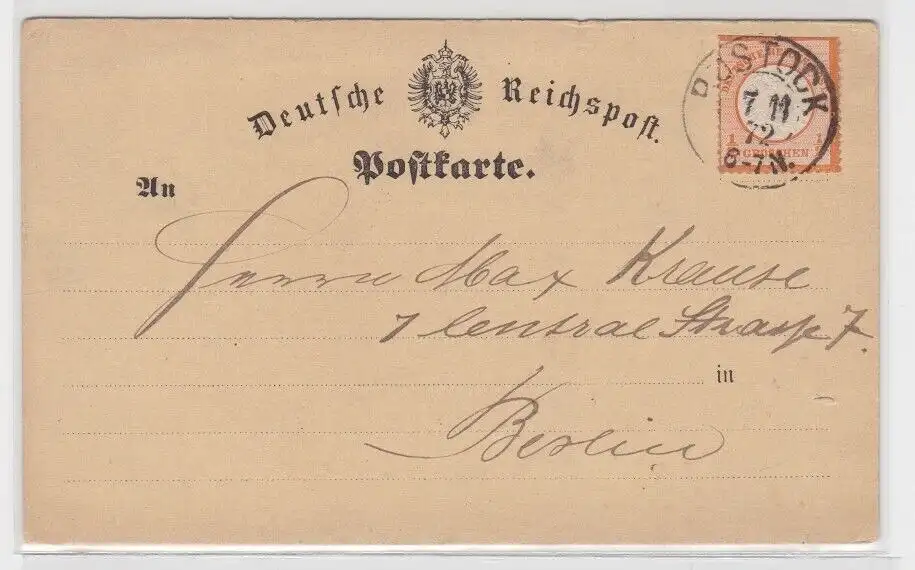 Deutsche Reichspost.
Postkarte.
ROSTOCK
7 11
72
6-7 N.
1/2 GROSCHEN 1/2
An
Herrn Max Krause
7 Central Strasse 7.
in
Berlin